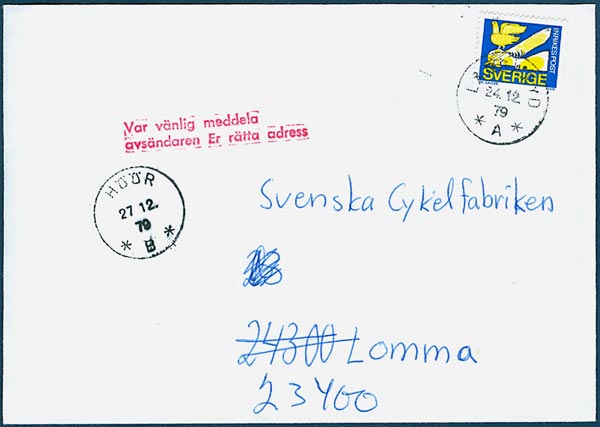 INRIKESPOST
SVERIGE
24.12.
79
* A *
Var vänlig meddela
avsändaren Er rätta adress
HÖÖR
27 12.
79
* B *
Svenska Cykelfabriken
24300 Lomma
23400